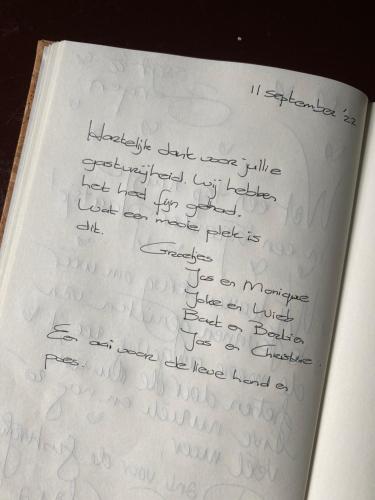 11 september '22
Hartelijk dank voor jullie
gastvrijheid. Wij hebben
het heel fijn gehad.
Wat een mooie plek is
dit.
Groetjes
Jos en Monique
Joke en Wieb
Bart en
Jos en Christine.
En aai voor de lieve hond en
poes.